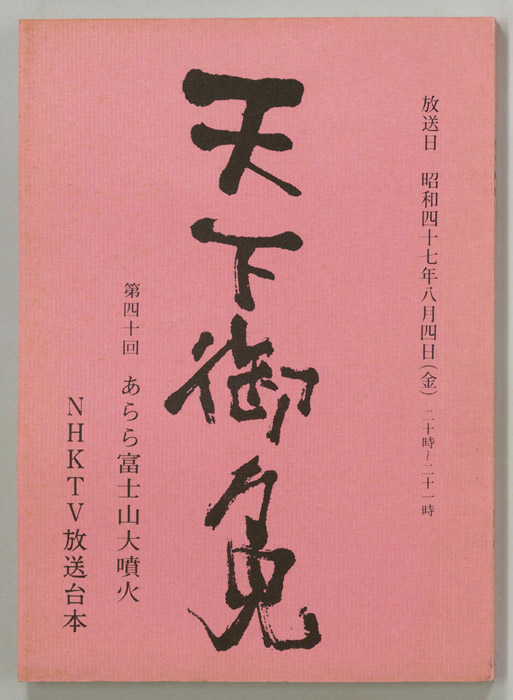 放送日　昭和四十七年八月四日（金）二十時～二十一時
天下御免
第四十回　あらら富士山大噴火
NHKTV放送台本